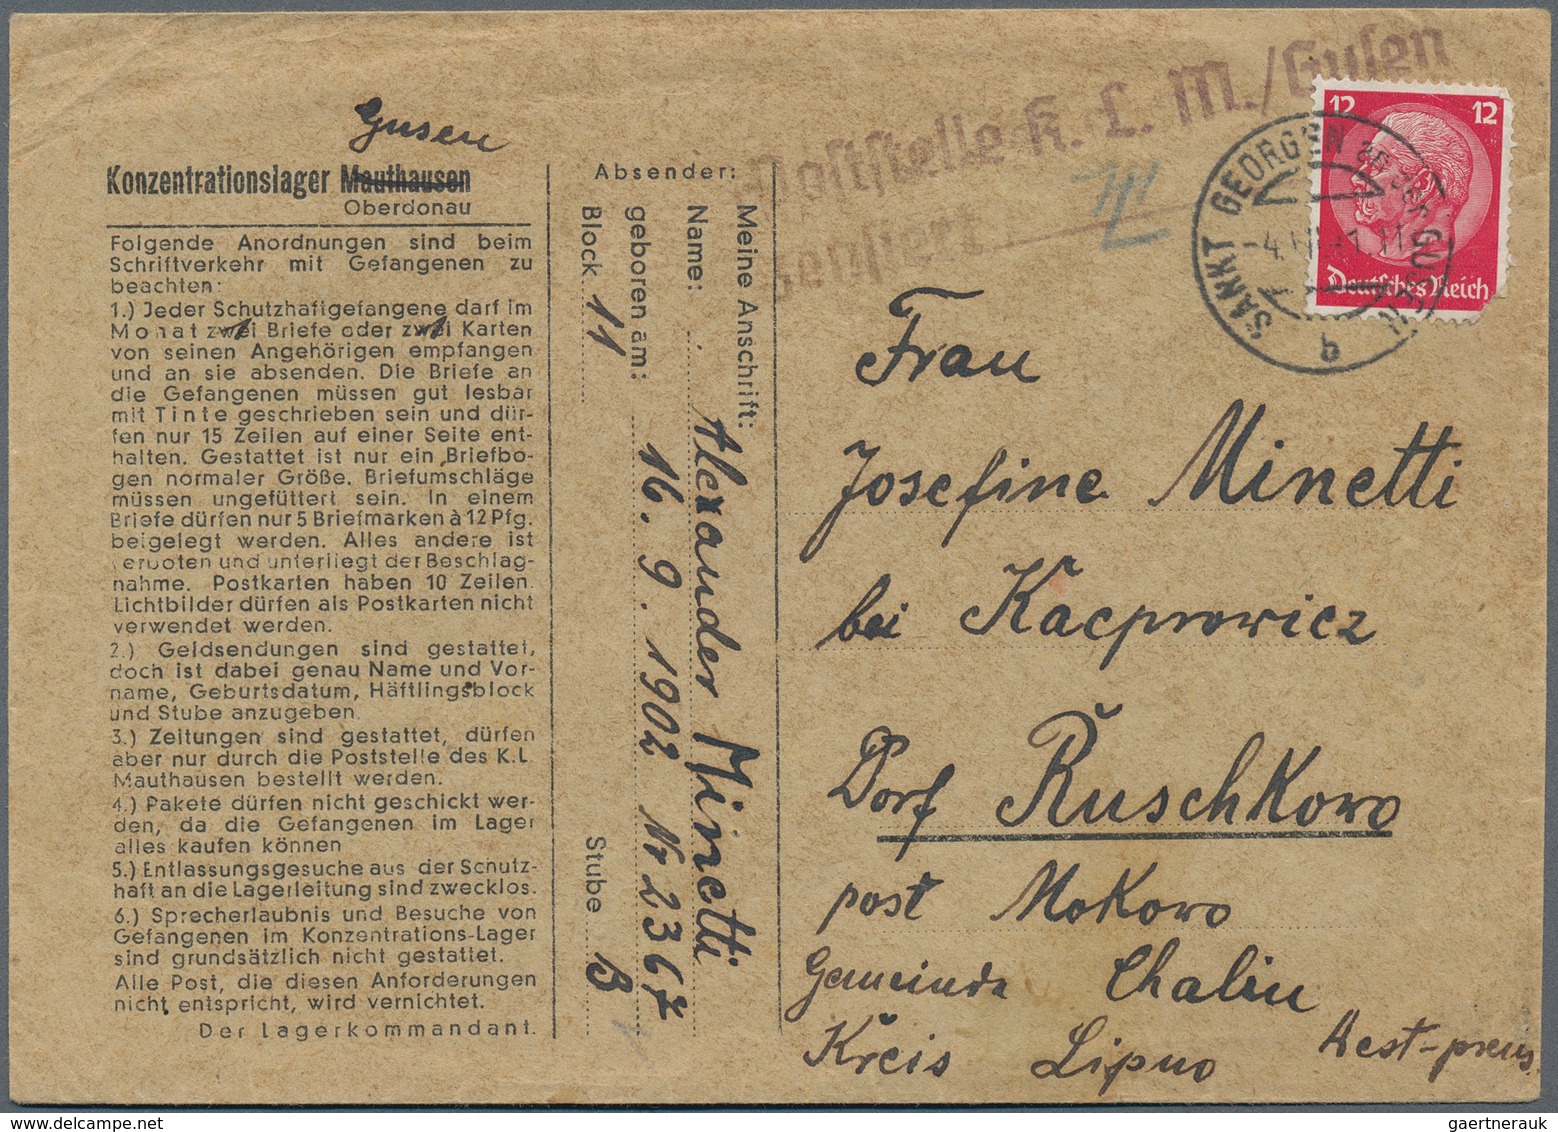 Gusen
Konzentrationslager Mauthausen
Oberdonau
Folgende Anordnungen sind beim
Schriftverkehr mit Gefangenen zu
beachten:
1.) Jeder Schutzhaftgefangene darf im
Monat zwei Briefe oder zwei Karten
von seinen Angehörigen empfangen
und an sie absenden. Die Briefe an
die Gefangenen müssen gut lesbar
mit Tinte geschrieben sein und dür-
fen nur 15 Zeilen auf einer Seite ent-
halten. Gestattet ist nur ein Briefbo-
gen normaler Größe. Briefumschläge
müssen ungefüttert sein. In einem
Briefe dürfen nur 5 Briefmarken à 12 Pfg.
beigelegt werden. Alles andere ist
verboten und unterliegt der Beschlag-
nahme. Postkarten haben 10 Zeilen.
Lichtbilder dürfen als Postkarten nicht
verwendet werden.
2.) Geldsendungen sind gestattet,
doch ist dabei genau Name und Vor-
name, Geburtsdatum, Häftlingsblock
und Stube anzugeben.
3.) Zeitungen sind gestattet, dürfen
aber nur durch die Poststelle des K.L.
Mauthausen bestellt werden.
4.) Pakete dürfen nicht geschickt wer-
den, da die Gefangenen im Lager
alles kaufen können
5.) Entlassungsgesuche aus der Schutz-
haft an die Lagerleitung sind zwecklos.
6.) Sprecherlaubnis und Besuche von
Gefangenen im Konzentrations-Lager
sind grundsätzlich nicht gestattet.
Alle Post, die diesen Anforderungen
nicht entspricht, wird vernichtet.
Der Lagerkommandant.
Absender:
Meine Anschrift:
Name: Alexander Minetti
geboren am: 16. 9. 1902 Nr 2367
Block 11 Stube B
Poststelle K. L. M./Gusen
zensiert
12 12
Deutsches Reich
SANKT GEORGEN
b
Frau
Josefine Minetti
bei Kacprowicz
Dorf Ruschkowo
post Mokowo
Gemeinde Chalin
Kreis Lipno West-preus.
gaertnerauk